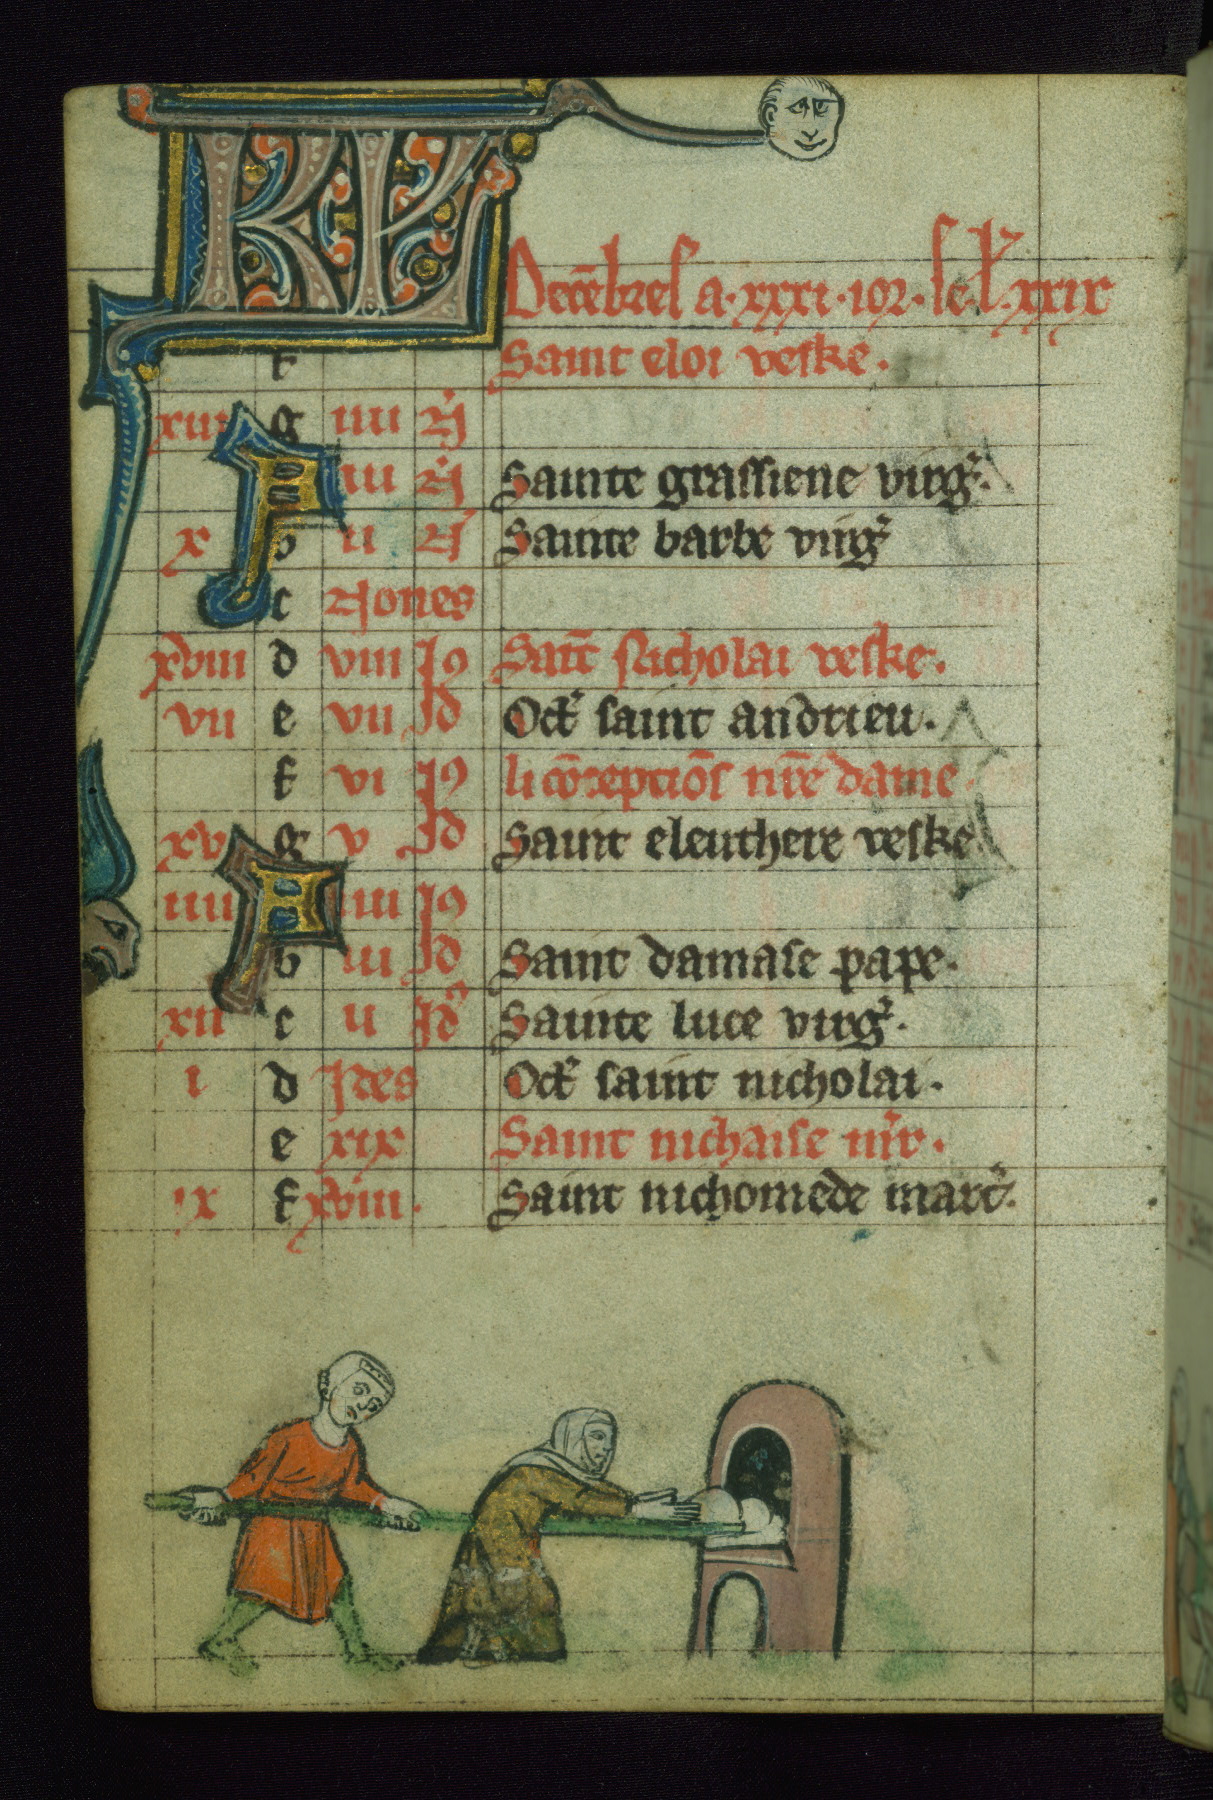 KL Decēbres a · xxxi · iors · se · lᷓ · xxix
f Saint eloi veske ·
xiii g iiii N̄
A iii N̄ Sainte grassiene virg̾ ·
x b ii N̄ Sainte barbe virg̾
c Nones
xviii d viii Id Saīt Nicholai veske ·
vii e vii Id Oct̾ saint andrieu ·
f vi Id li cōcepciōs nr̄e dame ·
xv g v Id Saint eleuthere veske
iiii A iiii Id
b iii Id Saint damase pape ·
xii c ii Id̾ Sainte luce virg̾ ·
i d Ides Oct̾ saint nicholai ·
e xix Saint nichaise mr̄ ·
ix f xviii · Saint nichomede mart̾ ·